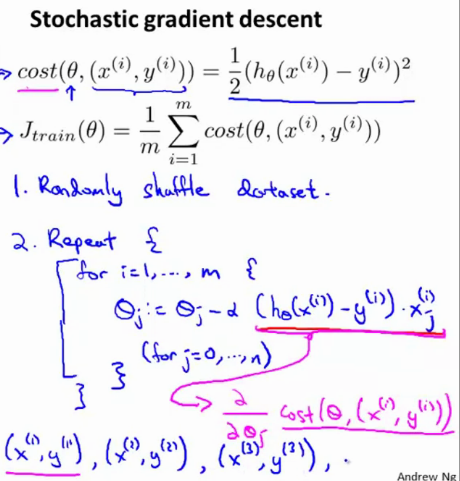 Stochastic gradient descent
→ cost(θ, (x^(i), y^(i))) = 1/2 (h_θ(x^(i)) − y^(i))²
→ J_train(θ) = 1/m ∑_{i=1}^{m} cost(θ, (x^(i), y^(i)))
1. Randomly shuffle dataset.
2. Repeat {
for i=1, ..., m {
θ_j := θ_j − α (h_θ(x^(i)) − y^(i)) · x_j^(i)
(for j=0, ..., n)
}
}
→ ∂/∂θ_j cost(θ, (x^(i), y^(i)))
(x^(1), y^(1)), (x^(2), y^(2)), (x^(3), y^(3)), .
Andrew Ng